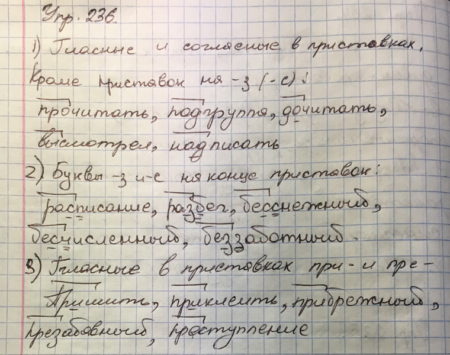 Упр. 236.
1) Гласные и согласные в приставках,
кроме приставок на -з (-с):
прочитать, подгруппа, дочитать,
высмотрел, надписать
2) Буквы -з и -с на конце приставок:
расписание, разбег, бесснежный,
бесчисленный, беззаботный.
3) Гласные в приставках при- и пре-
Пришить, приклеить, прибрежный,
презабавный, преступление